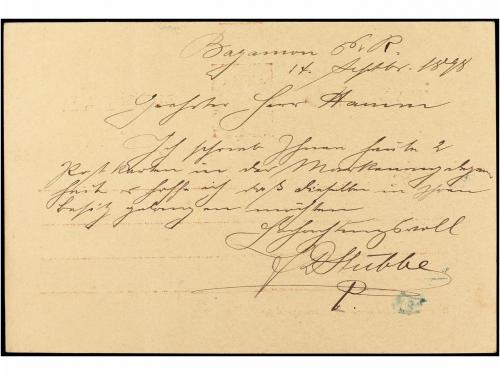 Bayamon P. R.
14. Septbr. 1898
Geehrter Herr Hamm
Ich schrieb Ihnen heute 2
Postkarten in der Markenangelegen
heit u hoffe ich daß dieselben in Ihren
Besitz gelangen möchten
Achtungsvoll
J D Stubbe